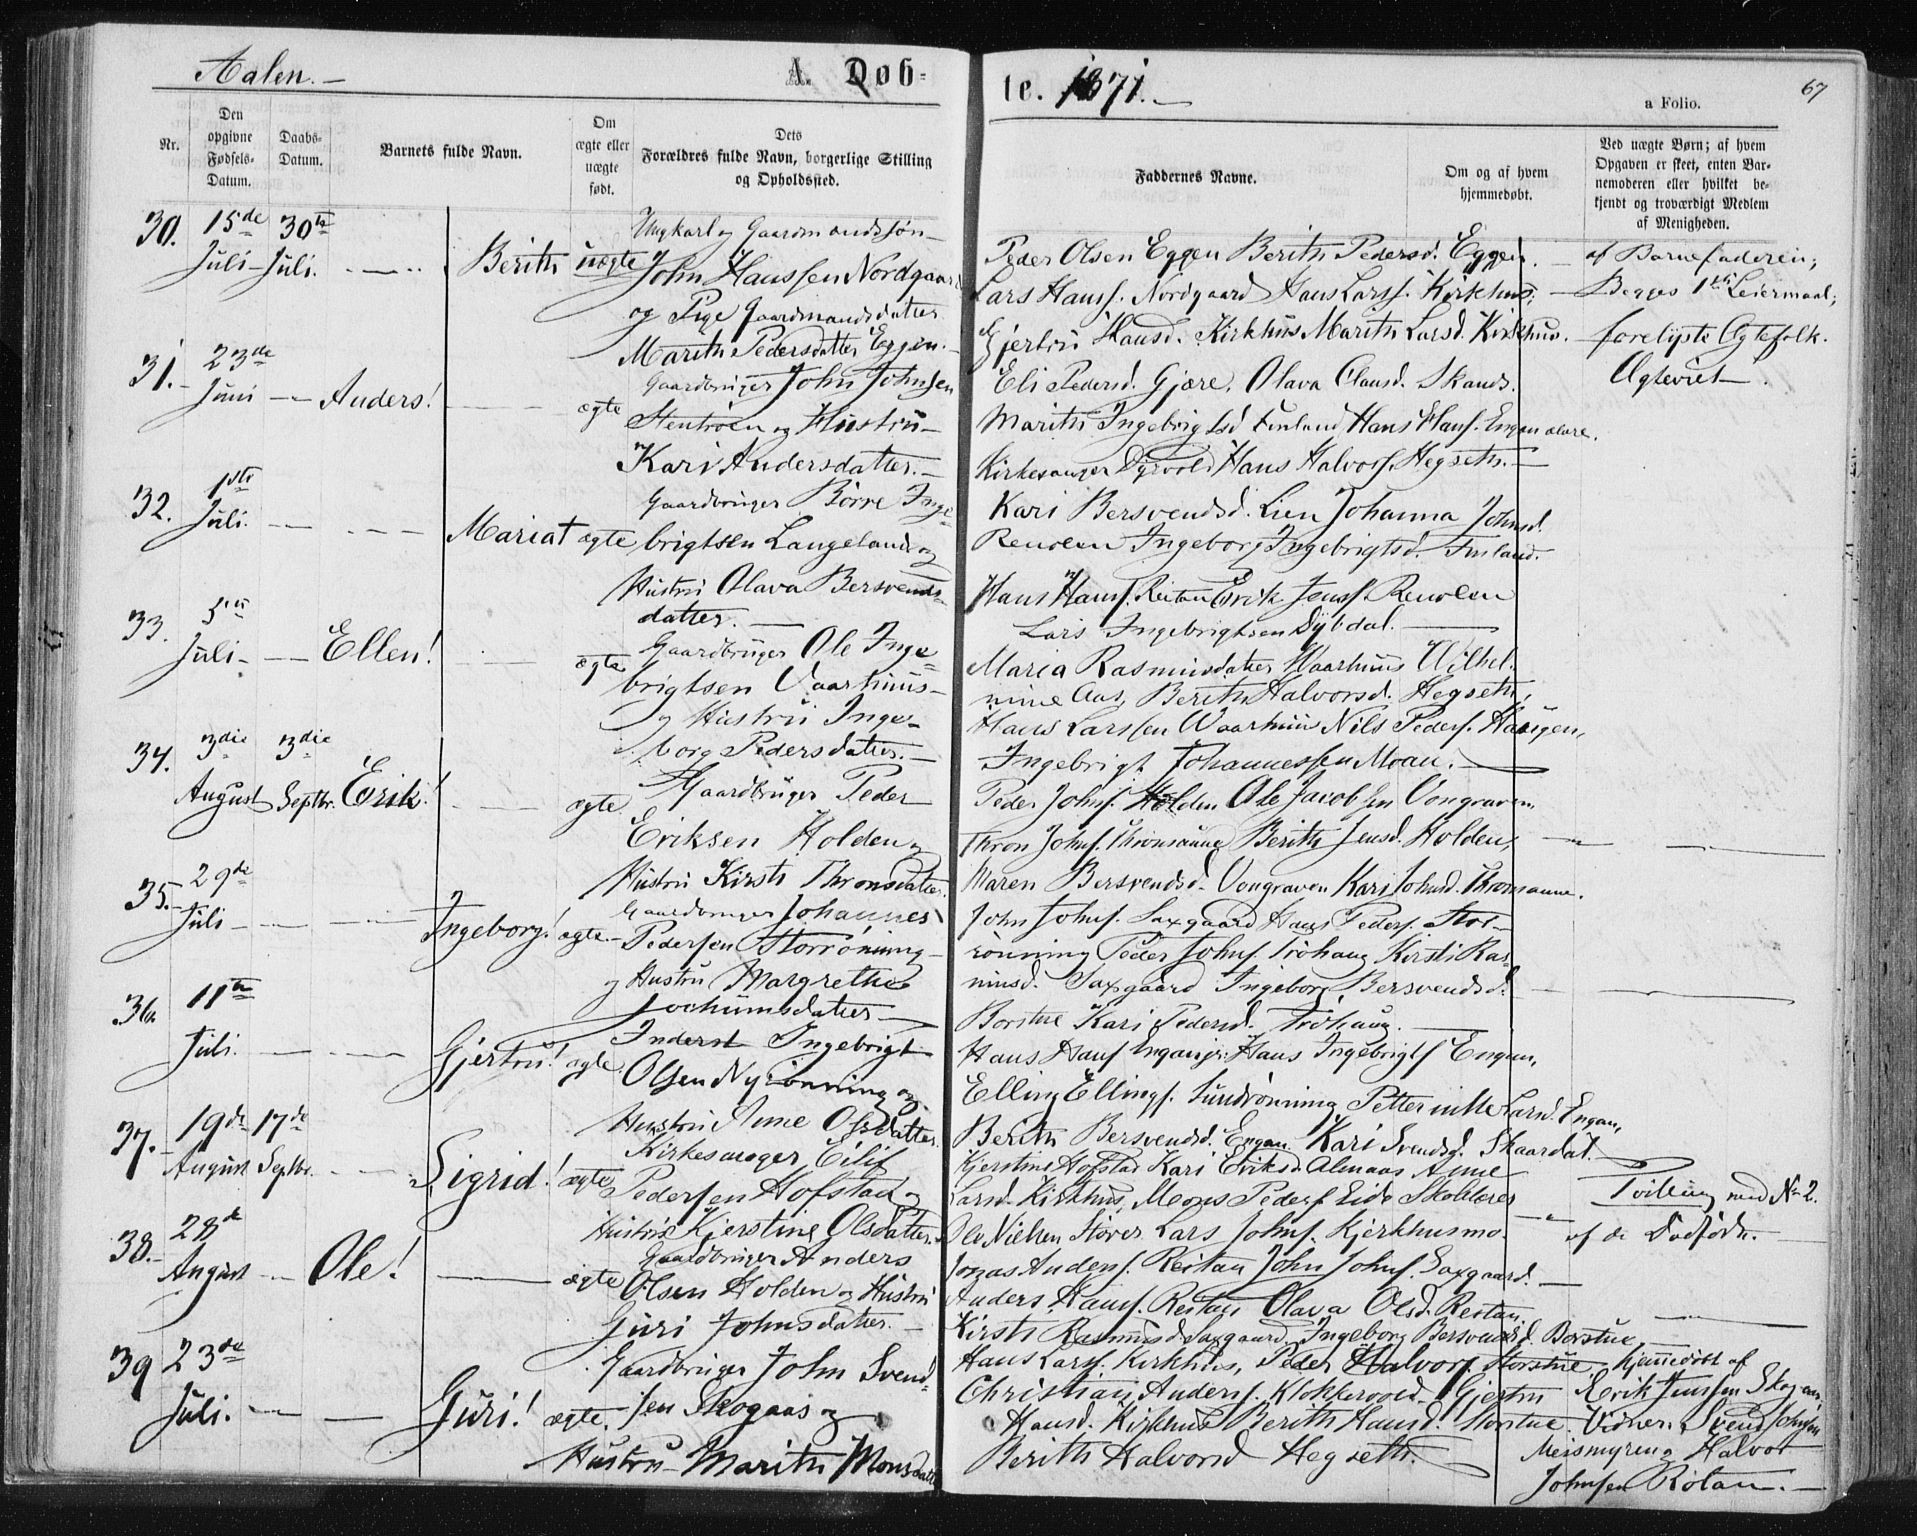 Aalen.
A. Døb-
te. 1871.
67
a Folio.
Nr.
Den opgivne Fødsels-Datum.
Daabs-Datum.
Barnets fulde Navn.
Om ægte eller uægte født.
Dets Forældres fulde Navn, borgerlige Stilling og Opholdssted.
Faddernes Navne.
Om og af hvem hjemmedøbt.
Ved uægte Børn; af hvem Opgaven er skeet, enten Barnemoderen eller hvilket bekjendt og troværdigt Medlem af Menigheden.
30. 15de Juli 30te Juli. Berith uægte
Ungkarl og Gaardmandssøn
John Hanssen Nordgaard
og Pige Gaardmandsdatter
Marith Pedersdatter Eggen.
Peder Olsen Eggen Berith Pedersd. Eggen.
Lars Hansf. Nordgaard Hans Larsf. Kirkhus;
Gjertru Hansd. Kirkhus Marith Larsd. Kirkhus.
af Barnefaderen;
Begges 1ste Leiermaal;
forelyste Egtefolk.
31. 23de Juni Anders! ægte
Gaardbruger John Johnsen
Stentrøen og Hustru
Kari Andersdatter.
Eli Pedersd. Gjære, Olava Olausd. Skands.
Marith Ingebrigtsd Finland Hans Hansf. Engan
Kirkesanger Dyrvold Hans Halvorsf. Hegseth.
32. 1ste Juli. Maria † ægte
Gaardbruger Börre Inge-
brigtsen Langeland og
Hustru Olava Bersvends-
datter.
Kari Bersvendsd. Lien Johanna Johnsd.
Renolen Ingeborg Ingebrigtsd. Finland.
Hans Hansf. Reitan Erik Jensf. Renolen
Lars Ingebrigtsen Dybdal.
33. 5te Juli Ellen! ægte
Gaardbruger Ole Inge-
brigtsen Vaarhuus
og Hustru Inge-
borg Pedersdatter.
Maria Rasmusdatter Waarhuus Wilhel-
mine Aas, Berith Halvorsd. Hegseth,
Hans Larssen Waarhuus Nils Pedersf. Haugen,
Ingebrigt Johannessen Moan.
34. 3die August 3die Septbr. Erik! ægte
Gaardbruger Peder
Eriksen Holden og
Hustru Kirsti Thronsdatter.
Peder Johnsf. Holden Ole Jacobsen Vongraven,
Thron Johnsf. Thronsaune Berith Jensd. Holden,
Maren Bersvendsd. Vongraven Kari Johnsd. Thronsaune.
35. 29de Juli Ingeborg! ægte
Gaardbruger Johannes
Pedersen Storrönning
og Hustru Margrethe
Jochumsdatter
John Johnsf. Saxgaard Hans Pedersf. Stor-
rönning Peder Johnsf. Tröhaug Kirsti Ras-
musd. Saxgaard Ingeborg Bersvendsd.
Borstue Kari Pedersd. Tröhaug.
36. 11te Juli. Gjertru! ægte
Inderst Ingebrigt
Olsen Nyrönning og
Hustru Anne Olsdatter.
Hans Hansf Engan jr. Hans Ingebrigtsf Engan,
Elling Ellingsf. Sundrönning Petternille Larsd. Engan,
Berith Bersvendsd. Engan Kari Svendsd. Skaardal.
37. 19de August 17de Septbr. Sigrid! ægte
Kirkesanger Eilif
Pedersen Hofstad og
Hustru Kjerstine Olsdatter.
Kjerstine Hofstad Kari Eriksd. Almaas Anne
Larsd. Kirkhus, Mons Pedersf Eide Skolelærer
Ole Nielsen Stöver Lars Johnsf. Kjerkhusmo.
Tvilling med No 2.
af de Dødfödte.
38. 28de August Ole! ægte
Gaardbruger Anders
Olsen Holden og Hustru
Guri Johnsdatter.
Jonas Andersf. Reitan John Johnsf. Saxgaard.
Anders Hansf. Reitan Olava Olsd. Reitan,
Kirsti Rasmusd. Saxgaard, Ingeborg Bersvendsd. Borstue
39 23de Juli. Guri! ægte.
Gaardbruger John Svend-
sen Skogaas og
Hustru Marith Monsdatter
Hans Larsf. Kirkhus, Peder Halvorsf. Storstue,
Christian Andersf. Klokkervold. Gjertru
Hansd. Kirkhus Berith Hansd. Storstue
Berith Halvorsd Hegseth.
Hjemmedöbt af
Erik Jensen Skogaas,
Vidner: Svend Johnsen
Meismyren og Halvor
Johnsen Rotan.